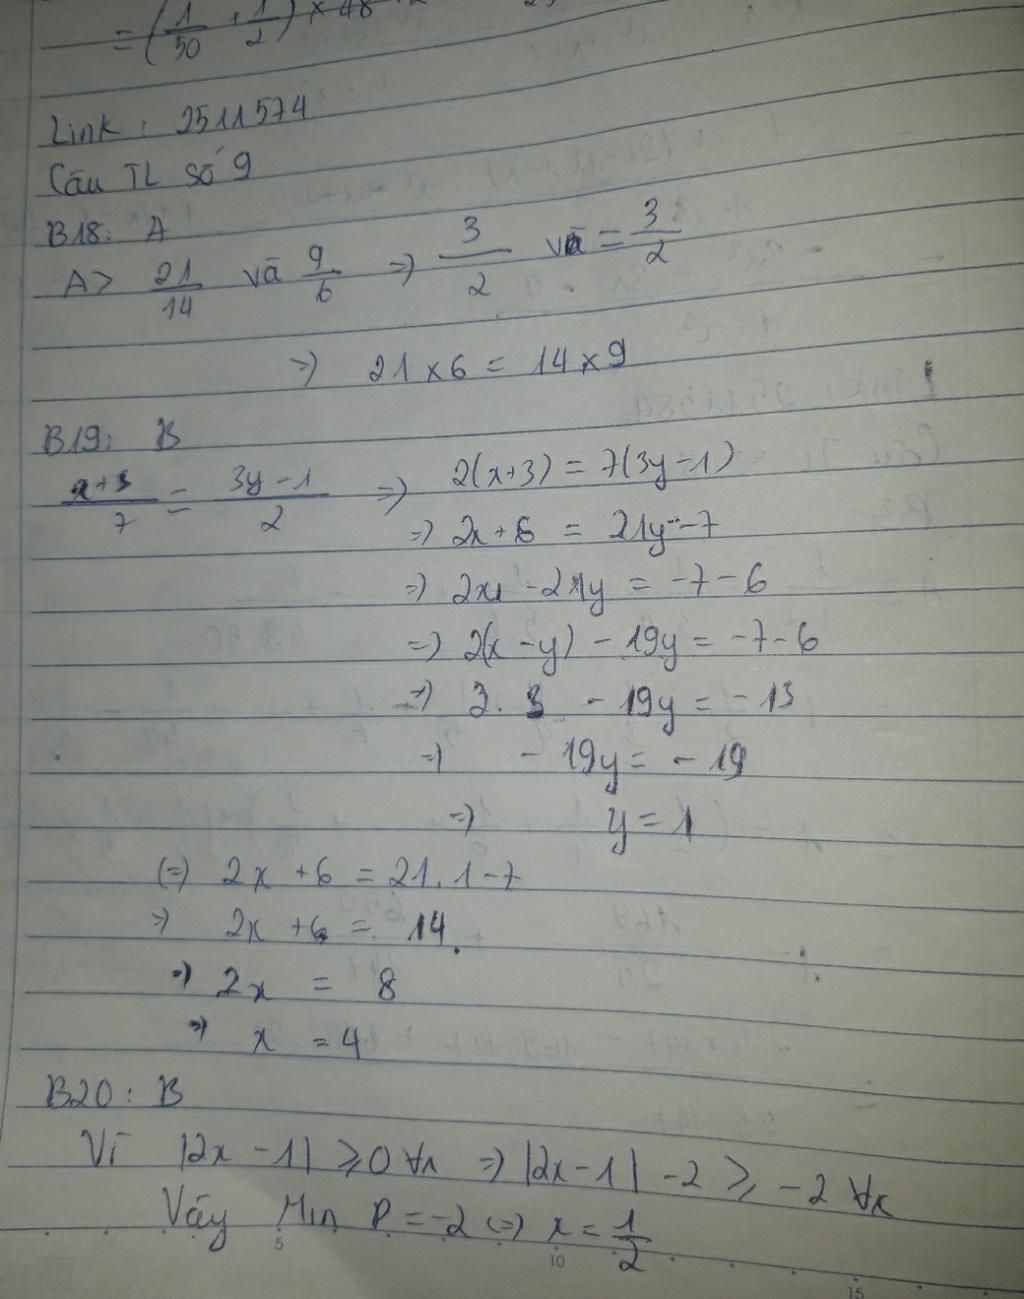 = (1/50 + 1/2) × 48
Link : 2511574
Câu TL số 9
B18: A
A> 21/14 và 9/6 => 3/2 và = 3/2
=> 21 × 6 = 14 × 9
B19: B
x+3/7 = 3y-1/2 => 2(x+3) = 7(3y-1)
=> 2x + 6 = 21y - 7
=> 2x - 21y = -7 - 6
=> 2(x - y) - 19y = -7 - 6
=> 2. 3 - 19y = -13
=> - 19y = - 19
=> y = 1
(=> 2x + 6 = 21. 1 - 7
=> 2x + 6 = 14
=> 2x = 8
=> x = 4
B20 : B
Vì |2x - 1| ⩾ 0 ∀x => |2x - 1| - 2 ⩾ -2 ∀x
Vậy Min P = -2 <=> x = 1/2
5
10
15